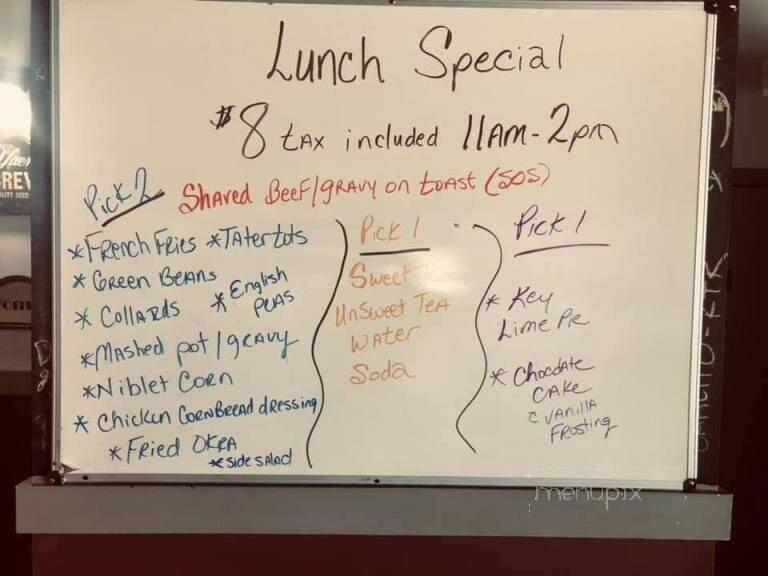 Lunch Special
$8 tax included 11AM-2pm
Pick 2
Shaved Beef/gravy on toast (SOS)
*French Fries *Tatertots
* Green Beans
* Collards * English Peas
*Mashed pot/gravy
*Niblet Corn
* Chicken Cornbread dressing
*Fried OKRA
*side salad
Pick 1
Sweet Tea
UnSweet TEA
Water
Soda
Pick 1
* Key
Lime Pie
* Chocolate
CAKE
c VANILLA
Frosting
menupix